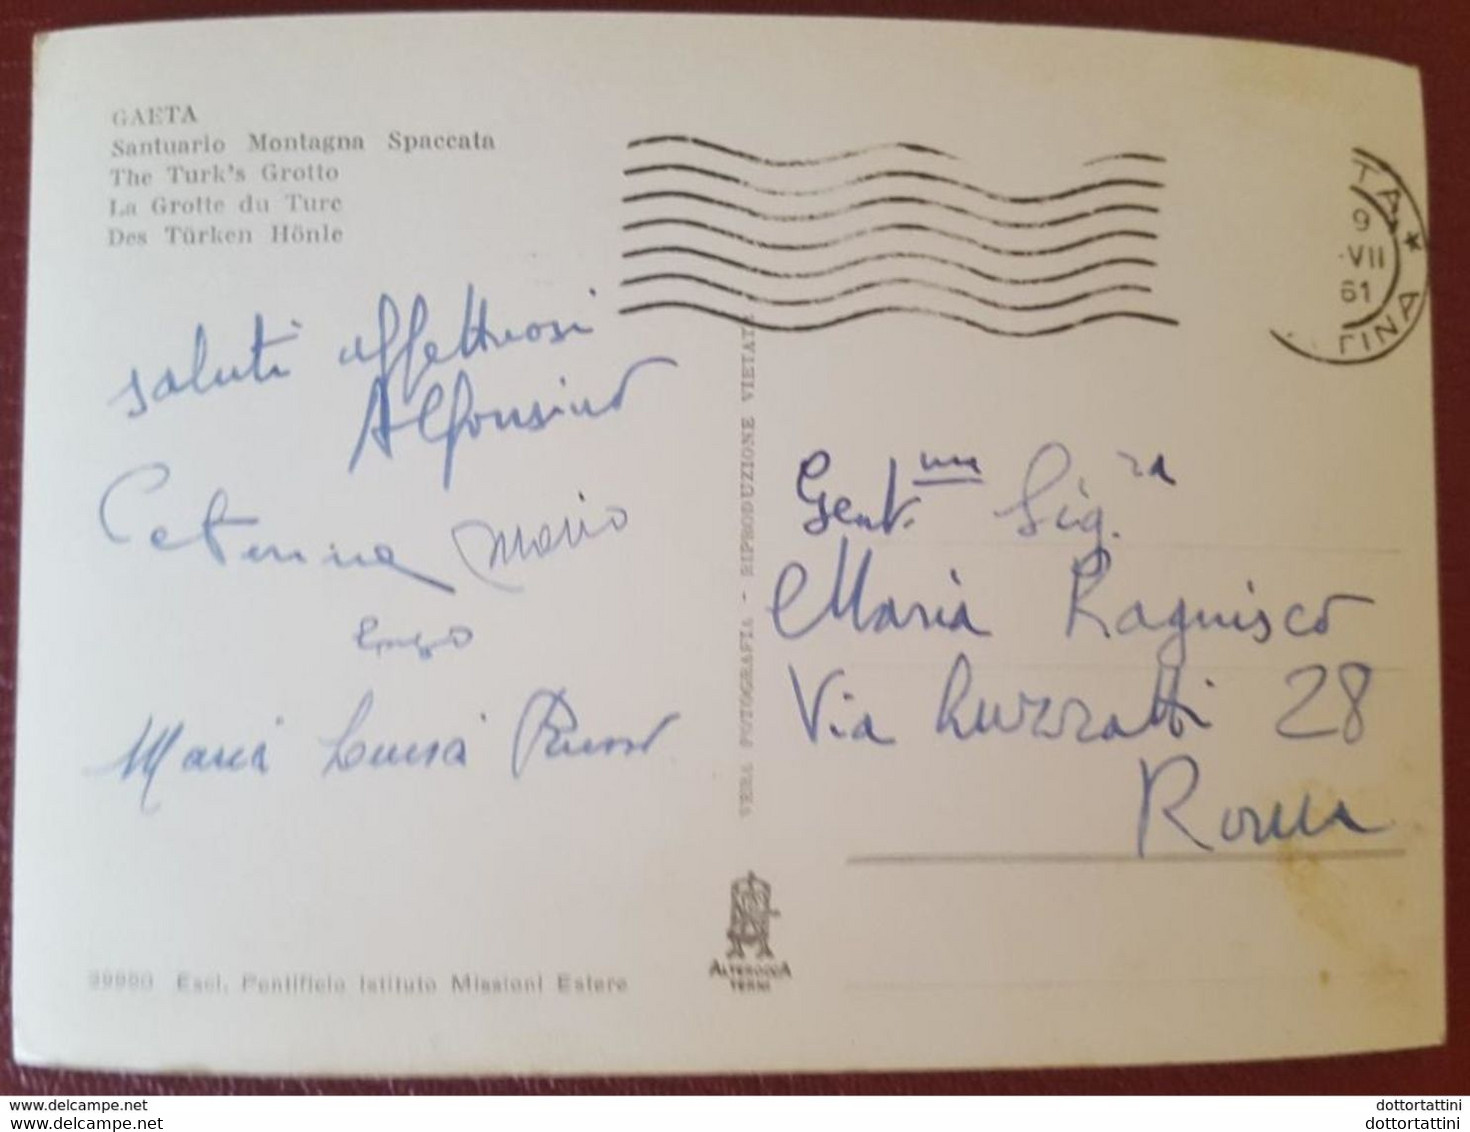 GAETA
Santuario Montagna Spaccata
The Turk's Grotto
La Grotte du Turc
Des Türken Hönle
TA ★
9
·VII
61
TINA
saluti affettuosi
Alfonsino
Caterina Mario
Maria Luisa
VERA FOTOGRAFIA - RIPRODUZIONE VIETATA
Gent.ma Sig.ra
Maria Ragnisco
Via Luzzatti 28
Roma
ALTEROCCA
TERNI
39980 Escl. Pontificio Istituto Missioni Estere
www.delcampe.net
www.delcampe.net
dottortattini
dottortattini